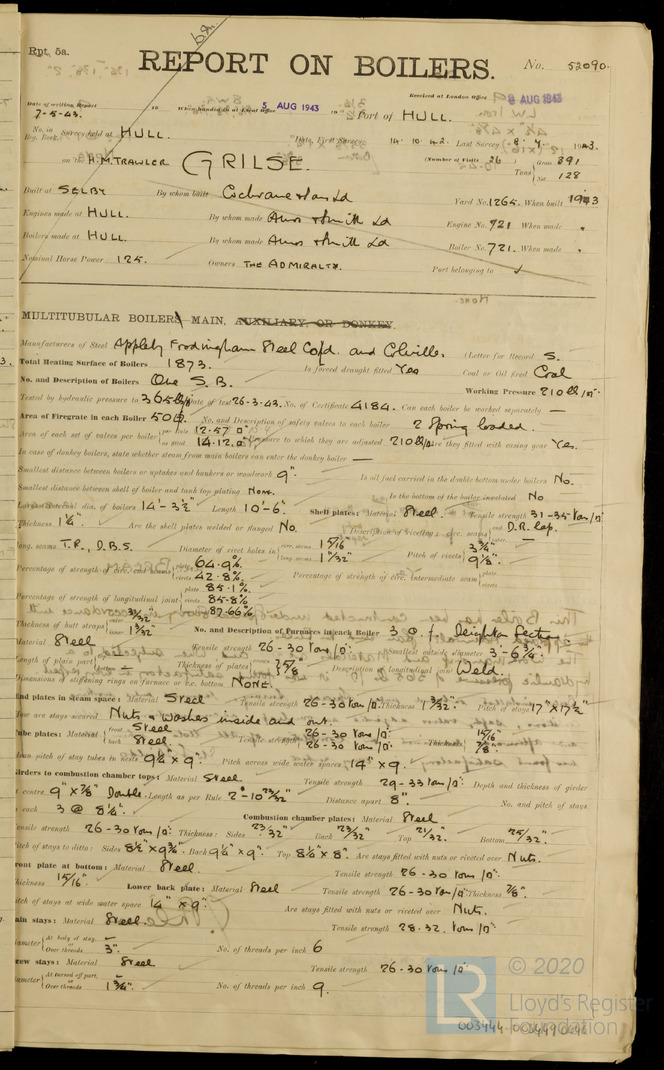 Rpt. 5a.
REPORT ON BOILERS.
No. 52090.
Received at London Office 9 AUG 1943
Date of writing Report 7-5-43. When handed in at Local Office 5 AUG 1943 Port of HULL.
No. in Reg. Book. Survey held at HULL. Date, First Survey 14.10.42. Last Survey 8.7.1943.
on the H.M. TRAWLER GRILSE. (Number of Visits 26) Tons Gross 391 Net 128
Built at SELBY By whom built Cochrane & Sons Ld Yard No. 1265. When built 1943
Engines made at HULL. By whom made Amos & Smith Ld Engine No. 721. When made
Boilers made at HULL. By whom made Amos & Smith Ld Boiler No. 721. When made
Nominal Horse Power 125. Owners THE ADMIRALTY. Port belonging to
MULTITUBULAR BOILERS MAIN, AUXILIARY, OR DONKEY.
Manufacturers of Steel Appleby Frodingham Steel Co Ld. and Colvilles. (Letter for Record S.
Total Heating Surface of Boilers 1873. Is forced draught fitted Yes Coal or Oil fired Coal
No. and Description of Boilers One S.B. Working Pressure 210 lb/□"
Tested by hydraulic pressure to 365 lb/□" Date of test 26-3-43. No. of Certificate 4184. Can each boiler be worked separately —
Area of Firegrate in each Boiler 50 No. and Description of safety valves to each boiler 2 Spring loaded.
Area of each set of valves per boiler per Rule 12.57 □" as fitted 14.12 □" Pressure to which they are adjusted 210 lb/□" Are they fitted with easing gear Yes.
In case of donkey boilers, state whether steam from main boilers can enter the donkey boiler —
Smallest distance between boilers or uptakes and bunkers or woodwork 9". Is oil fuel carried in the double bottom under boilers No.
Smallest distance between shell of boiler and tank top plating None. Is the bottom of the boiler insulated No
Largest internal dia. of boilers 14'-3½" Length 10'-6" Shell plates: Material Steel. Tensile strength 31-35 tons/□"
Thickness 1¼" Are the shell plates welded or flanged No. Description of riveting: circ. seams end D.R. lap.
long. seams T.R., D.B.S. Diameter of rivet holes in circ. seams 1 5/16" long. seams 1 9/32" Pitch of rivets 3¾" 9⅛"
Percentage of strength of circ. end seams plate 64.9% rivets 42.8% Percentage of strength of circ. intermediate seam plate rivets
Percentage of strength of longitudinal joint plate 85.1% rivets 85.8% 87.66%
Thickness of butt straps No. and Description of Furnaces in each Boiler 3 C.F. Deighton Section
Material Steel Tensile strength 26-30 tons/□" Smallest outside diameter 3'-6¾"
Length of plain part — Thickness of plates Description of longitudinal Weld.
Dimensions of stiffening rings on furnace or c.c. bottom NONE.
End plates in steam space: Material Steel Tensile strength 26-30 tons/□" Thickness 1 3/32" Pitch of stays 17" x 17½"
How are stays secured Nuts & Washers inside and out.
Tube plates: Material front Steel back Steel Tensile strength 26-30 tons/□" 26-30 tons/□" Thickness 15/16" 7/8"
Mean pitch of stay tubes in nests 9¼ x 9". Pitch across wide water spaces 14" x 9.
Girders to combustion chamber tops: Material Steel Tensile strength 29-33 tons/□" Depth and thickness of girder
at centre 9" x ⅞" Double. Length as per Rule 2'-10 23/32" Distance apart 8". No. and pitch of stays
in each 3 @ 8½". Combustion chamber plates: Material Steel
Tensile strength 26-30 tons/□" Thickness: Sides 23/32" Back 23/32" Top 21/32" Bottom 25/32"
Pitch of stays to ditto: Sides 8½" x 9¾" Back 9¼" x 9" Top 8½" x 8". Are stays fitted with nuts or riveted over Nuts.
Front plate at bottom: Material Steel. Tensile strength 26-30 tons/□"
Thickness 15/16" Lower back plate: Material Steel Tensile strength 26-30 tons/□" Thickness 7/8"
Pitch of stays at wide water space 14" x 9" Are stays fitted with nuts or riveted over Nuts.
Main stays: Material Steel. Tensile strength 28-32 tons/□"
Diameter At body of stay, or Over threads 3". No. of threads per inch 6
Screw stays: Material Steel Tensile strength 26-30 tons/□"
Diameter At turned off part, or Over threads 1¾" No. of threads per inch 9.
LR © 2020
Lloyd's Register
Foundation